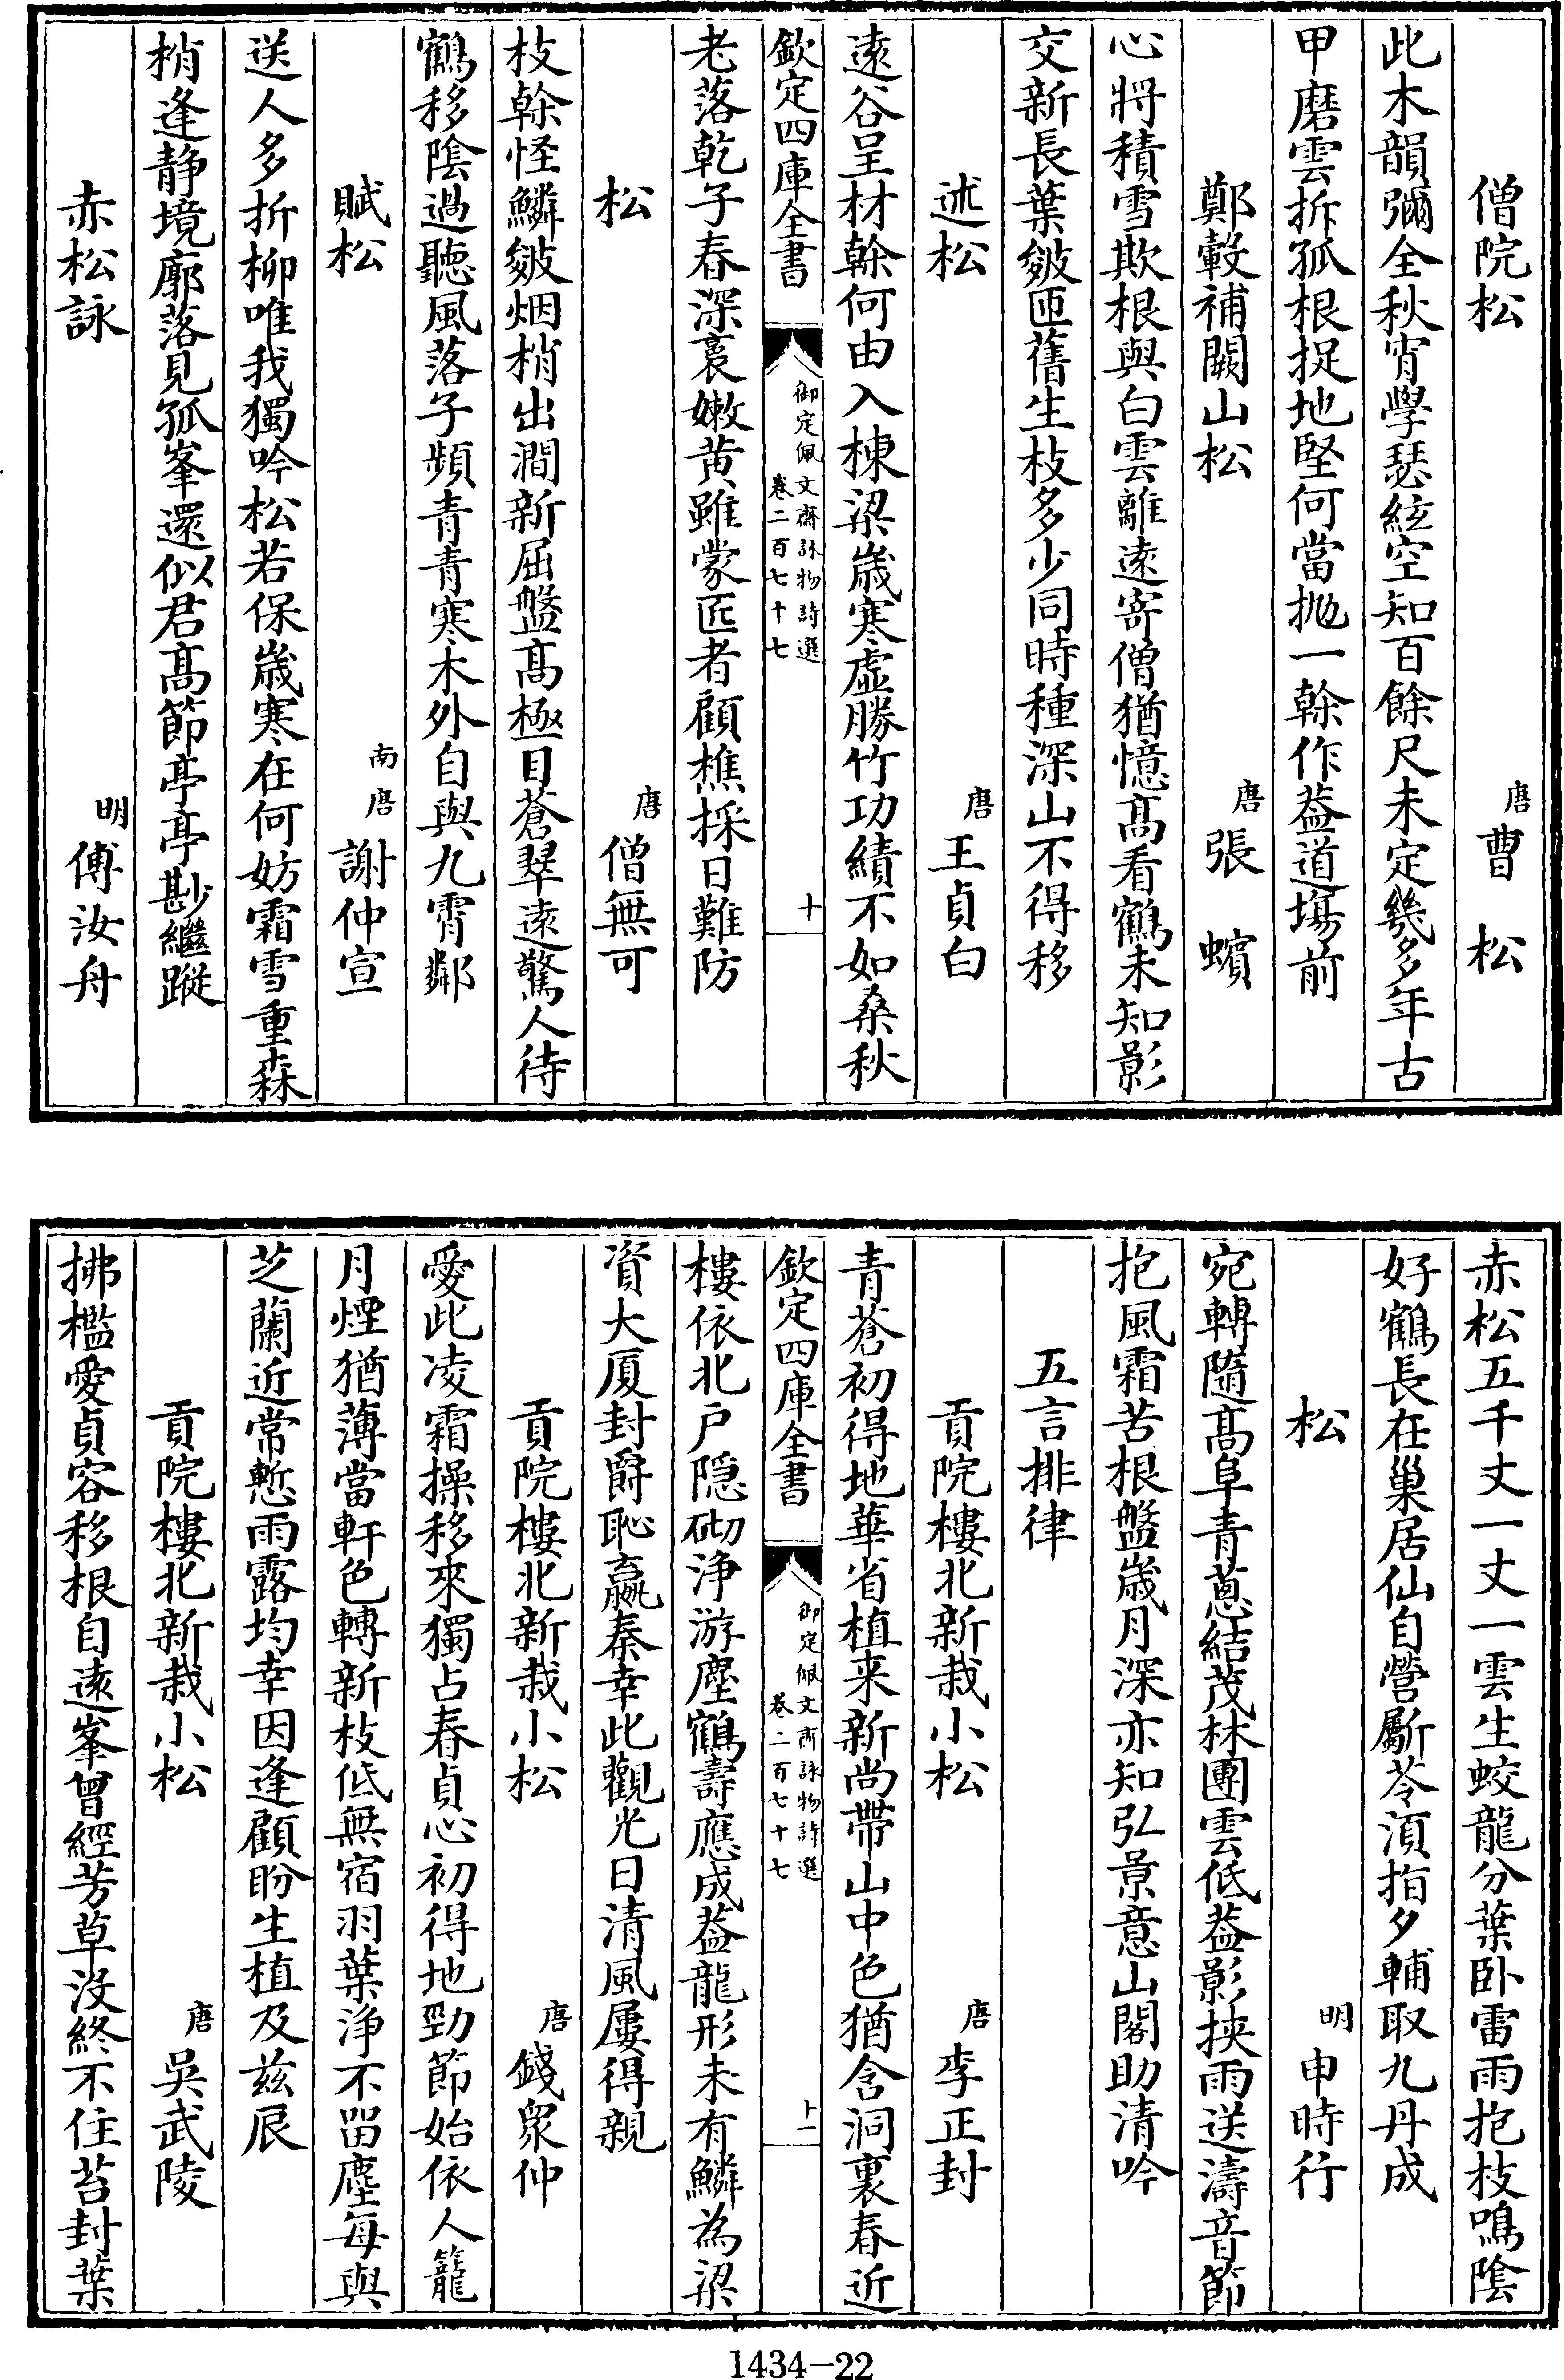 僧院松　唐曹松
此木韻彌全秋宵學瑟絃空知百餘尺未定幾多年古
甲磨雲拆孤根捉地堅何當抛一榦作葢道塲前
鄭轂補闕山松　唐張蠙
心將積雪欺根與白雲離遠寄僧猶憶髙看鶴未知影
交新長葉皴匝舊生枝多少同時種深山不得移
述松　唐王貞白
遠谷呈材榦何由入棟梁歳寒虚勝竹功績不如桑秋
欽定四庫全書　御定佩文齋詠物詩選　卷二百七十七　十
老落乾子春深裛嫩黄雖蒙匠者顧樵採日難防
松　唐僧無可
枝榦怪鱗皴烟梢出澗新屈盤髙極目蒼翠遠驚人待
鶴移陰過聽風落子頻青青寒木外自與九霄鄰
賦松　南唐謝仲宣
送人多折柳唯我獨吟松若保歳寒在何妨霜雪重森
梢逢静境廓落見孤峯還似君髙節亭亭尠繼蹤
赤松詠　明傅汝舟
赤松五千丈一丈一雲生蛟龍分葉卧雷雨抱枝鳴陰
好鶴長在巢居仙自營斸苓湏指夕輔取九丹成
松　明申時行
宛轉隨髙阜青蔥結茂林團雲低葢影挾雨送濤音節
抱風霜苦根盤歳月深亦知弘景意山閣助清吟
五言排律
貢院樓北新栽小松　唐李正封
青蒼初得地華省植来新尚帶山中色猶含洞裏春近
欽定四庫全書　御定佩文齋詠物詩選　卷二百七十七　十一
樓依北户隠砌浄游塵鶴壽應成葢龍形未有鱗為梁
資大厦封爵恥嬴秦幸此觀光日清風屢得親
貢院樓北新栽小松　唐錢衆仲
愛此凌霜操移來獨占春貞心初得地勁節始依人籠
月煙猶薄當軒色轉新枝低無宿羽葉浄不留塵每與
芝蘭近常慙雨露均幸因逢顧盼生植及兹辰
貢院樓北新栽小松　唐吳武陵
拂檻愛貞容移根自遠峯曾經芳草没終不任苔封葉
1434—22